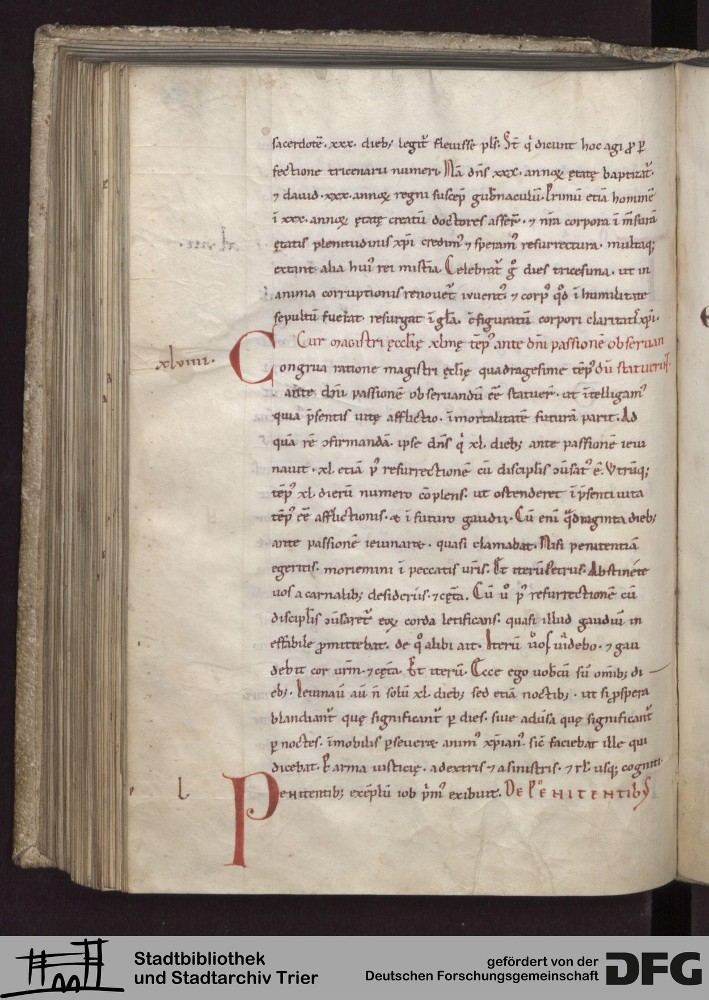 sacerdotē · xxx · dieb; legit᷑ fleuisse pl͛s. S̄t q̇ dicunt hoc agi ꝓ ꝑ
fectione tricenarii numeri. Nā dn̄s xxx · annoꝝ ętate baptizat᷑.
⁊ dauid · xxx · annoꝝ regni suscep̄ gub̄naculū. Primū etiā hominē
ī xxx · annoꝝ ętate creatū doctores asser̄ · ⁊ nr̄a corpora ī m̄surā
ętatis plenitudinis xp̄i credim᷒ ⁊ speram᷒ resurrectura · multaq;
extant alia hui᷒ rei mist̄ia. Celebrat᷑ g̊ dies tricesima · ut in
anima corruptionis renouet᷑ iuuent᷒ · ⁊ corp᷒ qd̊ ī humilitate
sepultū fuerat · resurgat ī gl̄a · ɔ̄figuratū corpori claritatis xp̄i.
Cur magistri ęcclię xl̄mę tēp᷒ ante dn̄i passionē obseruan
xlviiii.
Congrua ratione magistri ęcl̄ię quadragesime tēp᷒ dū statuerūt.
ante dn̄i passionē obseruandū ēē statuer̄ · ut ītelligam᷒
quia p̄sentis uitę afflictio · īmortalitatē futurā parit. Ad
quā rē ɔfirmandā · ipse dn̄s q̇ xl dieb; ante passionē ieiu
nauit · xl etiā p᷒ resurrectionē cū discipl̄is ɔūsat᷒ ē. Vtrūq;
tēp᷒ xl dierū numero cōplens · ut ostenderet ī p̄senti uita
tēp᷒ ēē afflictionis · & ī futuro gaudii. Cū eni quadraginta dieb;
ante passionē ieiunaret · quasi clamabat. Nisi penitentiā
egeritis · moriemini ī peccatis ur̄is. Et iterū Petrus. Abstinete
uos a carnalib; desideriis · ⁊ cęt̄a. Cū u̇ p᷒ resurrectionē cū
discipl̄is ɔūsaret᷑ eoꝝ corda letificans · quasi illud gaudiū in
effabile ꝓmittebat · de q̊ alibi ait. Iterū uos uidebo · ⁊ gau
debit cor ur̄m · ⁊ cęt̄a. Et iterū. Ecce ego uobcū sū omīb; di
eb;. Ieiunaū aū n̄ solū xl dieb; sed etiā noctib; · ut si ꝓspera
blandiant᷑ quę significant᷑ ꝑ dies · siue adūsa quę significant᷑
ꝑ noctes · īmobilis ꝑseueret anim᷒ xp̄ian᷒ · sic̄ faciebat ille qui
dicebat. P arma iusticię · a dextris ⁊ a sinistris · ⁊ rl̄ usq; cogniti.
l.
Penitentib; exēplū iob p̄m᷒ exibuit. De PENITENTIBUS
Stadtbibliothek
und Stadtarchiv Trier
gefördert von der
Deutschen Forschungsgemeinschaft
DFG